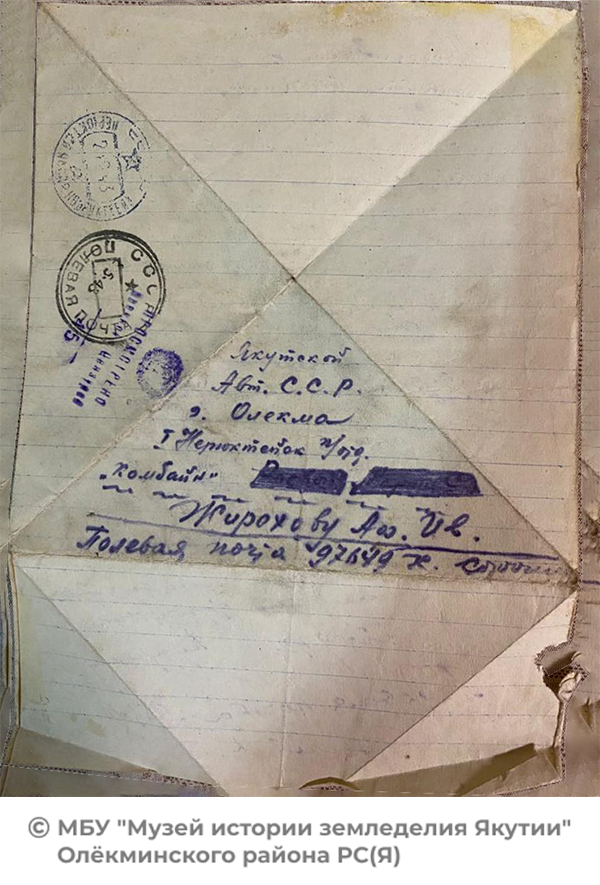 СССР
ПОЛЕВАЯ ПОЧТА
5.45
ПРОСМОТРЕНО
Военной Цензурой
15
Якутской
Авт. С.С.Р.
г. Олекма
I Нерюктейск п/отд.
„Комбайн“
Жирохову Аф. Ив.
Полевая почта 97649 К.
© МБУ "Музей истории земледелия Якутии"
Олёкминского района РС(Я)